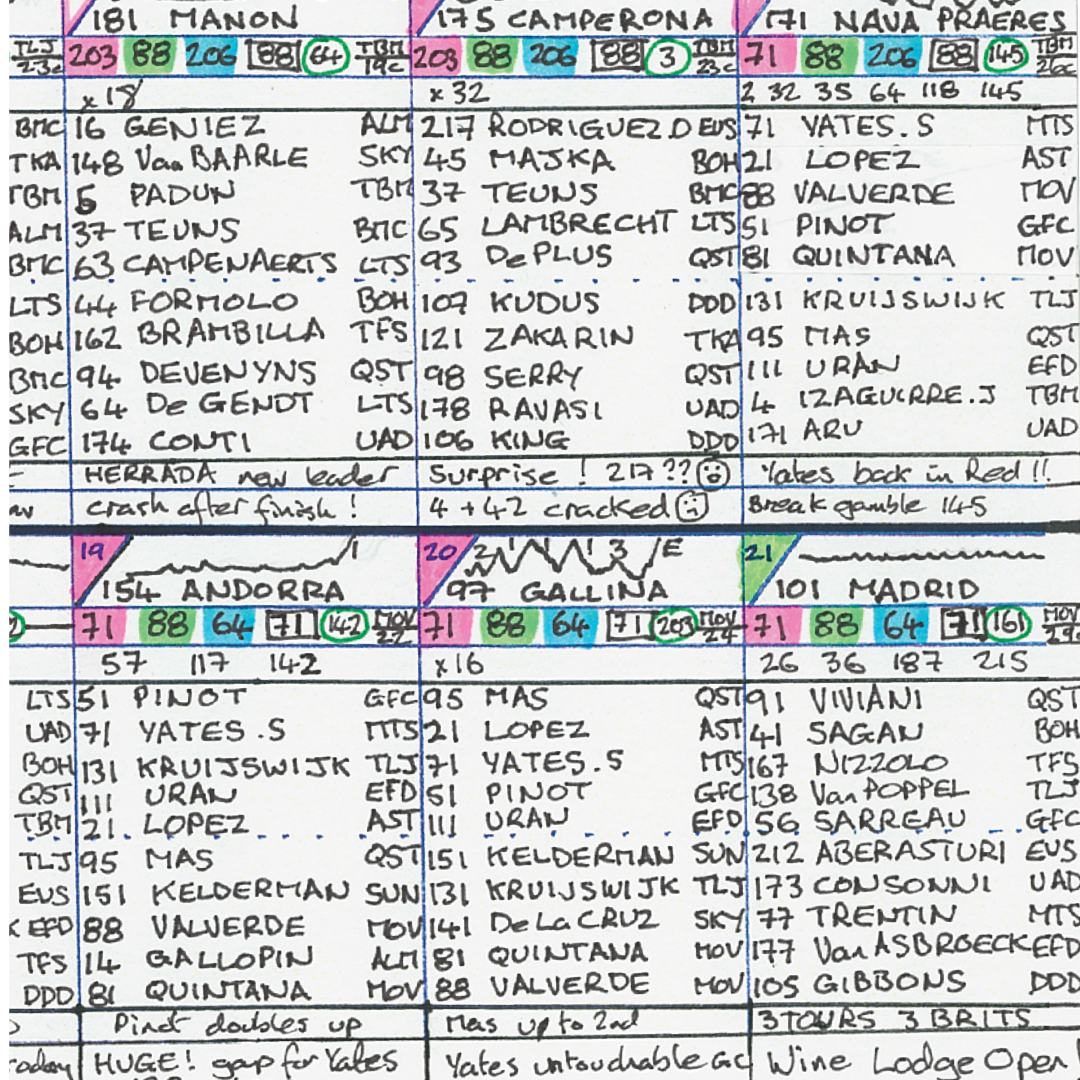 181 MANON
TLJ 203 88 206 88 64 TBM 19c
x 18
BMC 16 GENIEZ ALM
TKA 148 Van BAARLE SKY
TBM 5 PADUN TBM
ALM 37 TEUNS BMC
BMC 63 CAMPENAERTS LTS
LTS 44 FORMOLO BOH
BOH 162 BRAMBILLA TFS
BMC 94 DEVENYNS QST
SKY 64 De GENDT LTS
GFC 174 CONTI UAD
HERRADA new leader
crash after finish !
175 CAMPERONA
203 88 206 88 3 TBM 23c
x 32
217 RODRIGUEZ.D EUS
45 MAJKA BOH
37 TEUNS BMC
65 LAMBRECHT LTS
93 De PLUS QST
107 KUDUS DDD
121 ZAKARIN TKA
98 SERRY QST
178 RAVASI UAD
106 KING DDD
Surprise ! 217 ??
4 + 42 cracked
171 NAVA PRAERES
71 88 206 88 145 TBM 26c
2 32 35 64 118 145
71 YATES.S MTS
21 LOPEZ AST
88 VALVERDE MOV
51 PINOT GFC
81 QUINTANA MOV
131 KRUIJSWIJK TLJ
95 MAS QST
111 URAN EFD
4 IZAGUIRRE.J TBM
171 ARU UAD
Yates back in Red !!
Break gamble 145
19
154 ANDORRA
71 88 64 71 142 MOV 22
57 117 142
LTS 51 PINOT GFC
UAD 71 YATES.S MTS
BOH 131 KRUIJSWIJK TLJ
QST 111 URAN EFD
TBM 21 LOPEZ AST
TLJ 95 MAS QST
EUS 151 KELDERMAN SUN
EFD 88 VALVERDE MOV
TFS 14 GALLOPIN ALM
DDD 81 QUINTANA MOV
Pinot doubles up
HUGE! gap for Yates
20 2 1 1 1 3 E
97 GALLINA
71 88 64 71 203 MOV
x 16
95 MAS QST
21 LOPEZ AST
71 YATES.S MTS
51 PINOT GFC
111 URAN EFD
151 KELDERMAN SUN
131 KRUIJSWIJK TLJ
141 De La CRUZ SKY
81 QUINTANA MOV
88 VALVERDE MOV
Mas up to 2nd
Yates untouchable GC
21
101 MADRID
71 88 64 71 161 MOV
26 36 187 215
91 VIVIANI QST
41 SAGAN BOH
167 NIZZOLO TFS
138 Van POPPEL TLJ
56 SARREAU GFC
212 ABERASTURI EUS
173 CONSONNI UAD
77 TRENTIN MTS
177 Van ASBROECK EFD
105 GIBBONS DDD
3 TOURS 3 BRITS
Wine Lodge Open !